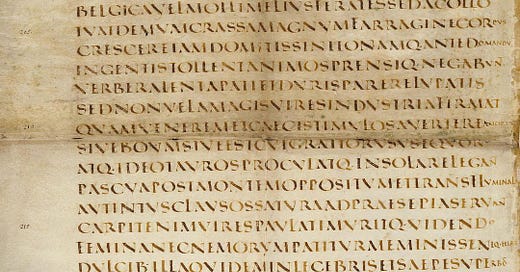 BELGICAVELMOLLIMELIVSFERATESSEDACOLLO
205 TVMDEMVMCRASSAMAGNVMFARRAGINECORPVS
CRESCEREIAMDOMITISSINITONAMQANTEDOMANDV
INGENTISTOLLENTANIMOSPRENSIQNEGABVN
VERBERALENTAPATIETDVRISPARERELVPATIS
SEDNONVLLAMAGISVIRESINDVSTRIAFIRMAT
210 QVAMVENEREMETCAECISTIMVLOSAVERTEREA
SIVEBOVMSIVEESTCVIGRATIORVSVSEQVOR
ATQIDEOTAVROSPROCVLATQINSOLARELEGAN
PASCVAPOSTMONTEMOPPOSITVMETTRANSFLVMINALA
AVTINTVSCLAVSOSSATVRAADPRAESEPIASERVAN
215 CARPITENIMVIRESPAVLATIMVRITQVIDENDO
FEMINANECNEMORVMPATITVRMEMINISSEN
DVLCIBILLAQVIDEMINLECEBRISETSAEPESVPERBO